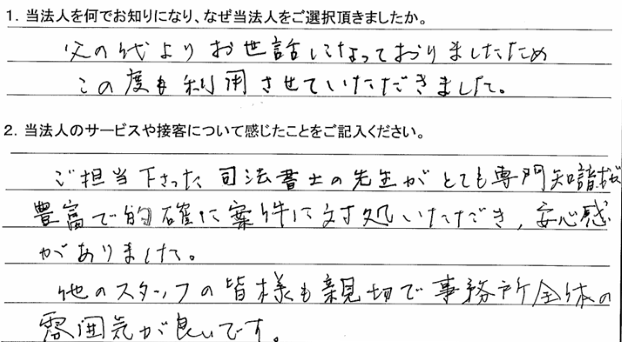 1. 当法人を何でお知りになり、なぜ当法人をご選択頂きましたか。
父の代よりお世話になっておりましたため
この度も利用させていただきました。
2. 当法人のサービスや接客について感じたことをご記入ください。
ご担当下さった司法書士の先生がとても専門知識が
豊富で的確に案件に対処いただき、安心感
がありました。
他のスタッフの皆様も親切で事務所全体の
雰囲気が良いです。